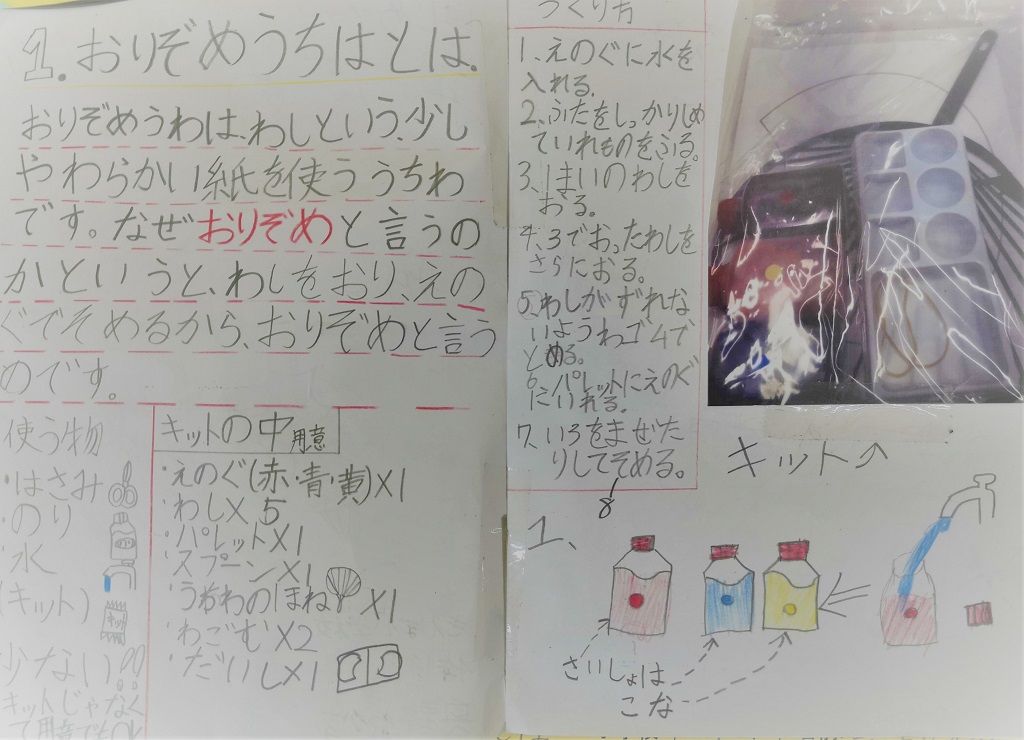 1.おりぞめうちはとは.
おりぞめうわは、わしという、少し
やわらかい紙を使ううちわ
です。なぜおりぞめと言うの
かというと、わしをおり、えの
ぐでそめるから、おりぞめと言う
のです。
使う物
・はさみ
・のり
・水
(キット)
少ない!!
キットじゃなく
て用意でもOK
キットの中用意
・えのぐ(赤・青・黄)×1
・わし×5
・パレット×1
・スプーン×1
・うちわのほね×1
・わごむ×2
・だいし×1
つくり方
1、えのぐに水を
入れる.
2、ふたをしっかりしめ
ていれものをふる。
3、1まいのわしを
おる。
4、3でおったわしを
さらにおる。
5、わしがずれな
いようわゴムで
とめる。
6、パレットにえのぐ
にいれる.
7、いろをまぜた
りしてそめる。
8
キット↑
1、
さいしょは
こな